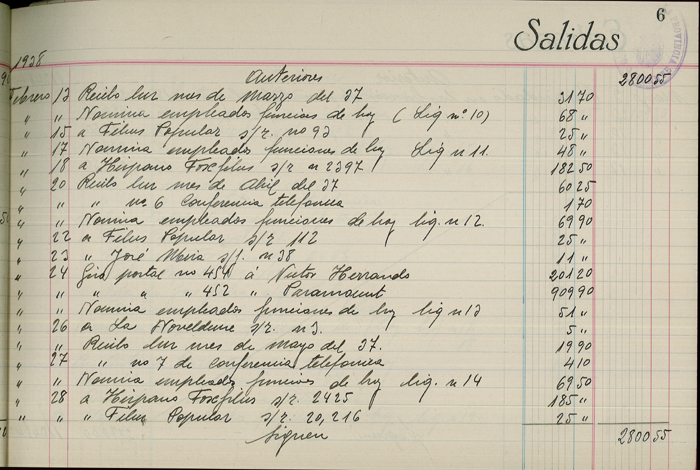 6
Salidas
1938
Anteriores 2800 55
Febrero 13 Recibo luz mes de Marzo del 37 31 70
" " Nomina empleados funciones de hoy (Liq nº 10) 68 "
" 15 a Films Popular s/r. no 93 25 "
" 17 Nomina empleados funciones de hoy Liq n 11. 48 "
" 18 a Hispano Foxfilms s/r n 2397 182 50
" 20 Recibo luz mes de Abril del 37 60 25
" " " no 6 Conferencia telefonica 1 70
" " Nomina empleados funciones de hoy liq. n 12. 69 90
" 22 a Films Popular s/r 112 25 "
" 23 " José Mira s/f. n 38 11 "
" 24 Giro postal no 451 á Victor Herrando 201 20
" " " " " 452 " Paramount 909 90
" " Nomina empleados funciones de hoy liq n 13 51 "
" 26 a La Noveldense s/r. n 3. 5 "
" " Recibo luz mes de Mayo del 37. 19 90
" 27 " no 7 de conferencia telefonica 4 10
" " Nomina empleados funciones de hoy liq. n 14 69 50
" 28 a Hispano Foxfilms s/r. 2425 185 "
" " " Films Popular s/r. 20,216 25 "
Siguen 2800 55